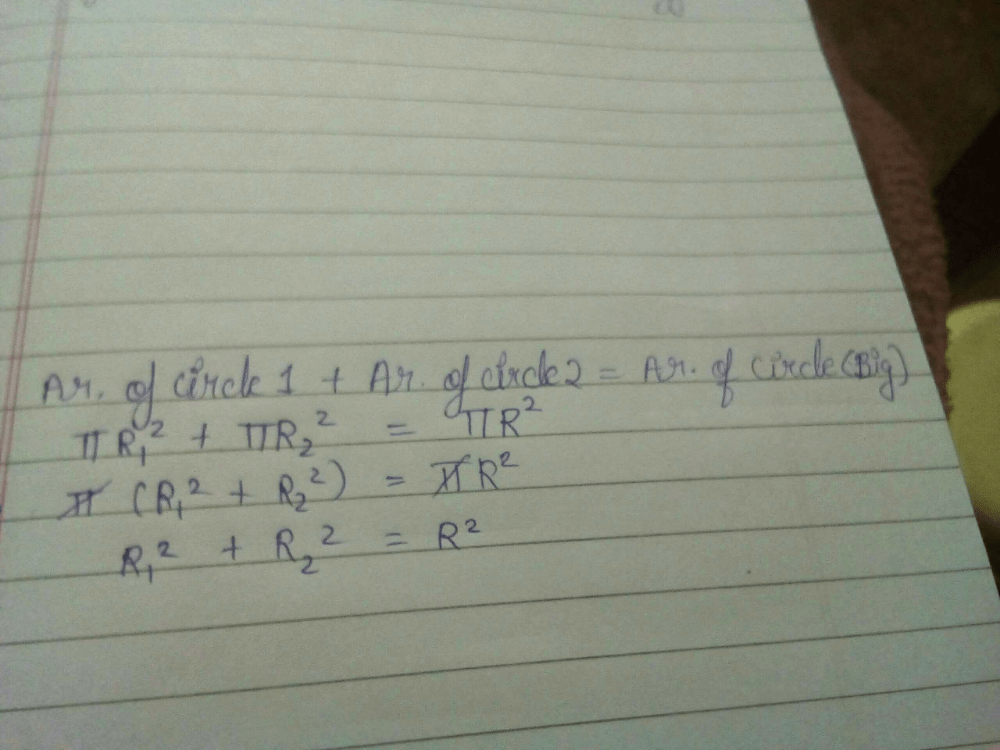 Ar. of circle 1 + Ar. of circle 2 = Ar. of circle (Big)
πR₁² + πR₂² = πR²
π (R₁² + R₂²) = πR²
R₁² + R₂² = R²